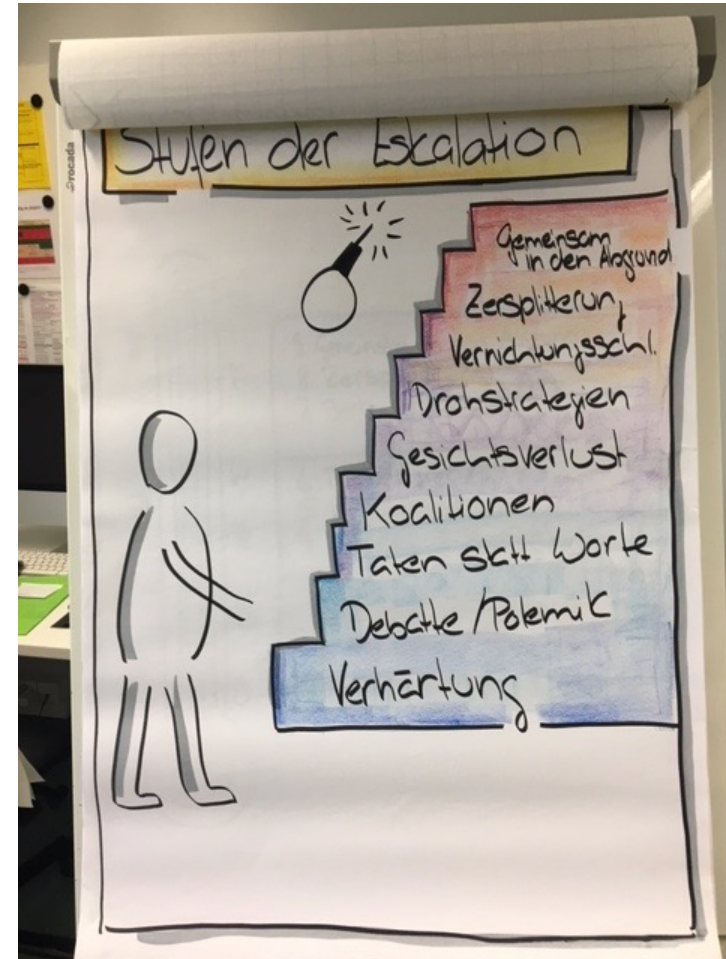 Stufen der Eskalation
rocada
Gemeinsam
in den Abgrund
Zersplitterung
Vernichtungsschl.
Drohstrategien
Gesichtsverlust
Koalitionen
Taten statt Worte
Debatte/Polemik
Verhärtung